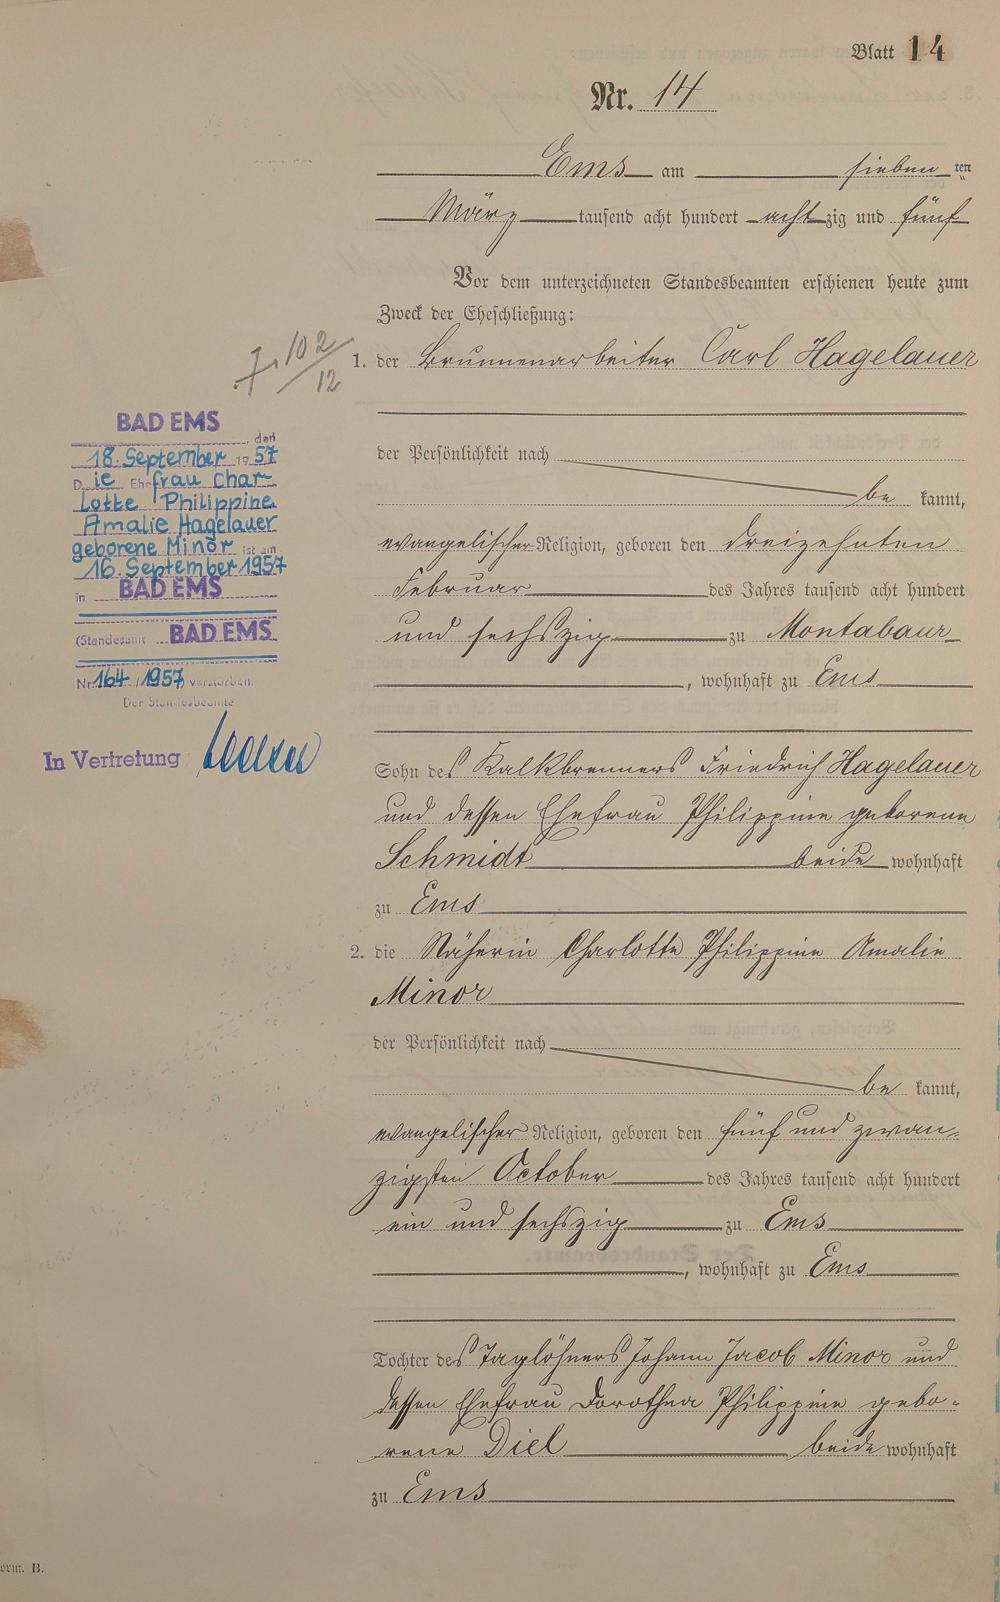 Blatt 14
Nr. 14
Ems am sieben ten
März tausend acht hundert acht zig und fünf
Vor dem unterzeichneten Standesbeamten erschienen heute zum
Zweck der Eheschließung:
1. der Brunnenarbeiter Carl Hagelauer
der Persönlichkeit nach
be kannt,
evangelischer Religion, geboren den dreizehnten
Februar des Jahres tausend acht hundert
und sechszig zu Montabaur
, wohnhaft zu Ems
Sohn des Kalkbrenners Friedrich Hagelauer
und dessen Ehefrau Philippine geborene
Schmidt beide wohnhaft
zu Ems
2. die Näherin Charlotte Philippine Amalie
Minor
der Persönlichkeit nach
be kannt,
evangelischer Religion, geboren den fünf und zwan-
zigsten October des Jahres tausend acht hundert
ein und sechszig zu Ems
, wohnhaft zu Ems
Tochter des Taglöhners Johann Jacob Minor und
dessen Ehefrau Dorothea Philippine gebo-
rene Diel beide wohnhaft
zu Ems
7. 102/12
BAD EMS, den
18. September 1957
Die Ehefrau Char-
lotte Philippine
Amalie Hagelauer
geborene Minor ist am
16. September 1957
in BAD EMS
(Standesamt BAD EMS
Nr. 164/1957) verstorben.
Der Standesbeamte
In Vertretung
orm. B.